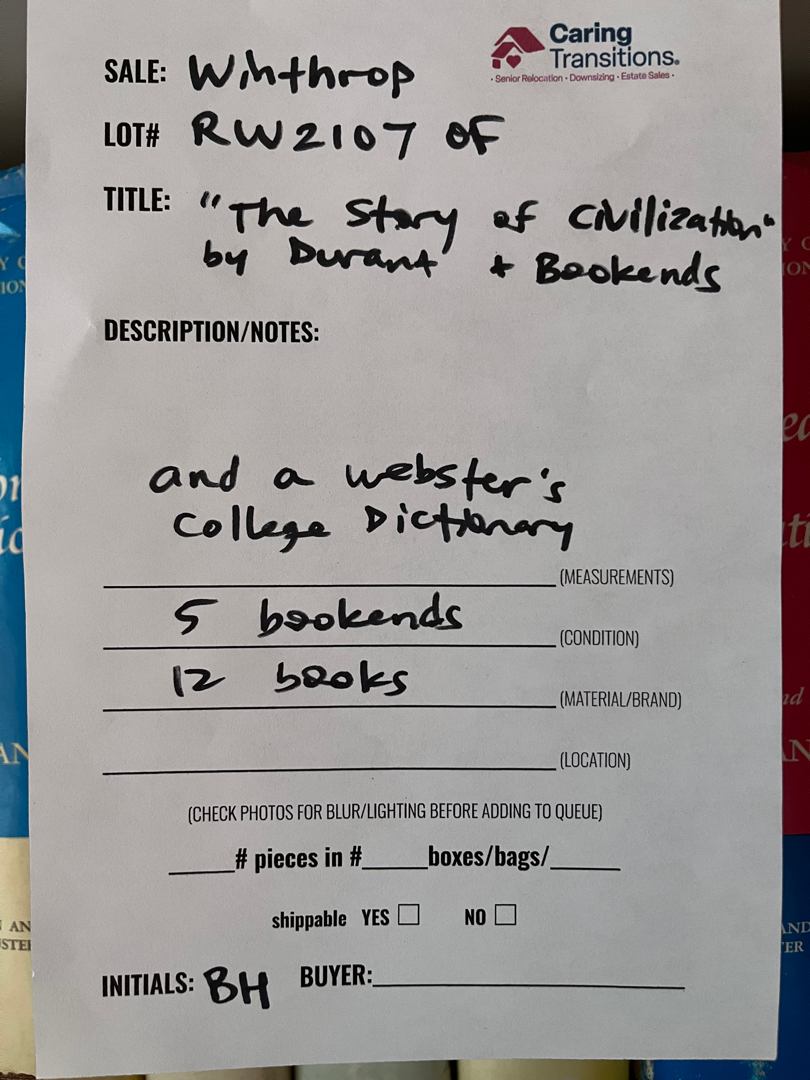 Caring
Transitions®
· Senior Relocation · Downsizing · Estate Sales ·
SALE: Winthrop
LOT# RW2107 OF
TITLE: "The Story of Civilization"
by Durant + Bookends
DESCRIPTION/NOTES:
and a webster's
College Dictionary
(MEASUREMENTS)
5 bookends
(CONDITION)
12 books
(MATERIAL/BRAND)
(LOCATION)
(CHECK PHOTOS FOR BLUR/LIGHTING BEFORE ADDING TO QUEUE)
____# pieces in #____boxes/bags/____
shippable YES ☐ NO ☐
INITIALS: BH BUYER: